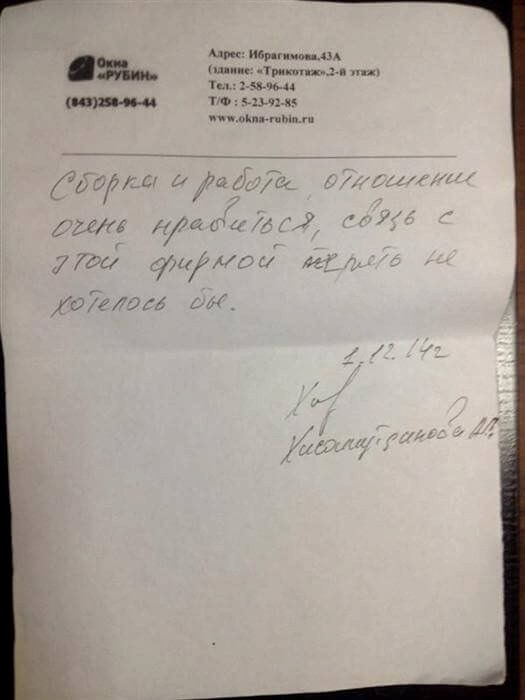 Окна
«РУБИН»
(843)258-96-44
Адрес: Ибрагимова,43А
(здание: «Трикотаж»,2-й этаж)
Тел.: 2-58-96-44
Т/Ф : 5-23-92-85
www.okna-rubin.ru
Сборка и работа, отношение
очень нравиться, связь с
этой фирмой терять не
хотелось бы.
1.12.14г
Хисамутдинова